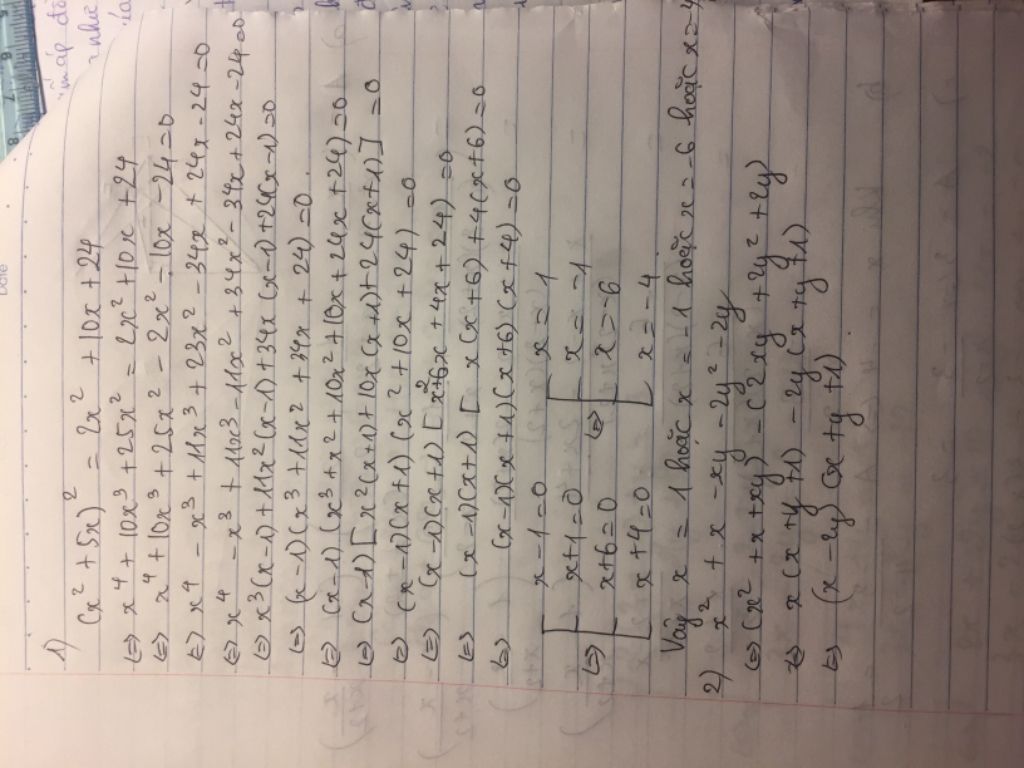 Date
1)
(x² + 5x)² = 2x² + 10x + 24
⇔ x⁴ + 10x³ + 25x² = 2x² + 10x + 24
⇔ x⁴ + 10x³ + 25x² - 2x² - 10x - 24 = 0
⇔ x⁴ - x³ + 11x³ + 23x² - 34x + 24x - 24 = 0
⇔ x⁴ - x³ + 11x³ - 11x² + 34x² - 34x + 24x - 24 = 0
⇔ x³(x-1) + 11x²(x-1) + 34x(x-1) + 24(x-1) = 0
⇔ (x-1)(x³ + 11x² + 34x + 24) = 0
⇔ (x-1)(x³ + x² + 10x² + 10x + 24x + 24) = 0
⇔ (x-1)[x²(x+1) + 10x(x+1) + 24(x+1)] = 0
⇔ (x-1)(x+1)(x² + 10x + 24) = 0
⇔ (x-1)(x+1)[x²+6x + 4x + 24) = 0
⇔ (x-1)(x+1)[x(x+6) + 4(x+6) = 0
⇔ (x-1)(x+1)(x+6)(x+4) = 0
⇔ [ x-1 = 0 ⇔ [ x = 1
x+1 = 0 x = -1
x+6 = 0 x = -6
x+4 = 0 x = -4
Vậy x = 1 hoặc x = -1 hoặc x = -6 hoặc x = -4
2) x² + x - xy - 2y² - 2y
⇔ (x² + x + xy) - (2xy + 2y² + 2y)
⇔ x(x + y + 1) - 2y(x + y + 1)
⇔ (x - 2y)(x + y + 1)